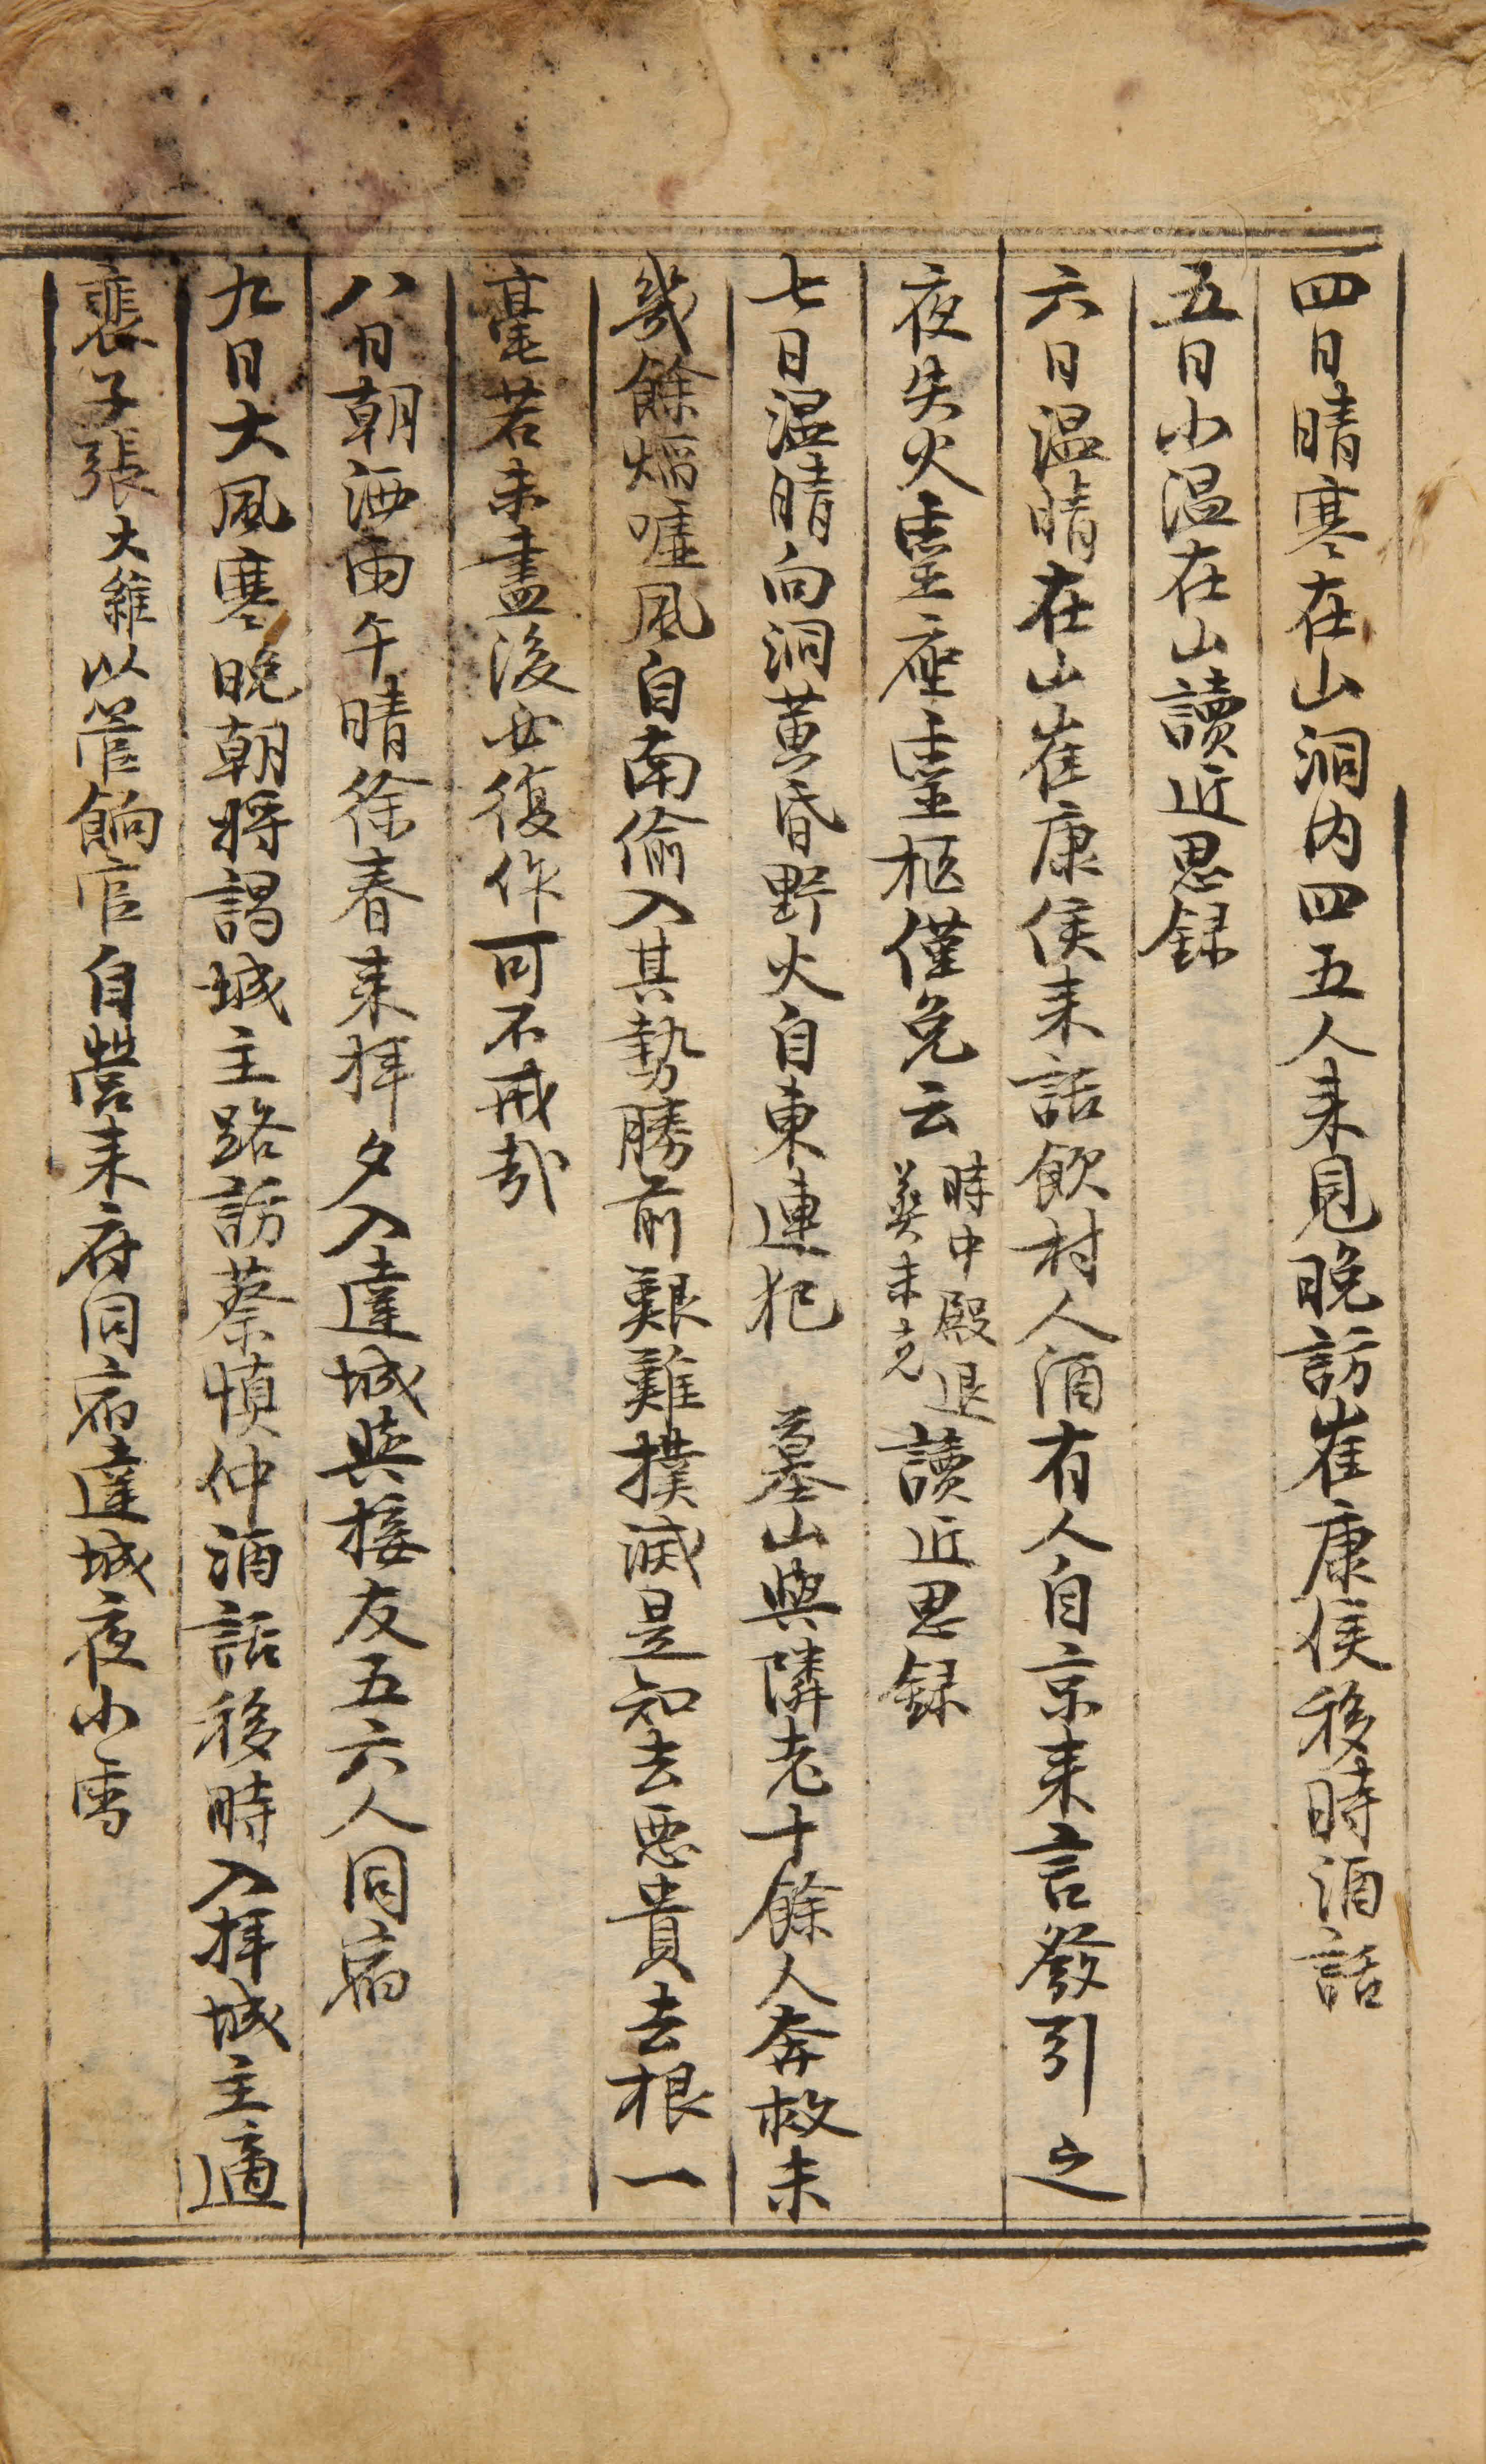 四日晴寒在山洞内四五人来見晩訪崔康侯移時酒話
五日小温在山讀近思録
六日温晴在山崔康侯来話飲村人酒有人自京来言發引之
夜失火靈座靈柩僅免云
時中殿退
葬未克
讀近思録
七日温晴向洞黄昏野火自東連犯 墓山與隣老十餘人奔救未
幾餘焰嘘風自南偷入其勢勝前艱難撲滅是知去悪貴去根一
毫若未盡後必復作可不戒哉
八日朝洒雨午晴徐春来拜夕入達城與接友五六人同宿
九日大風寒晩朝将謁城主路訪蔡慎仲酒話移時入拜城主適
裴子張
大維以管餉官
自營来府同宿達城夜小雪